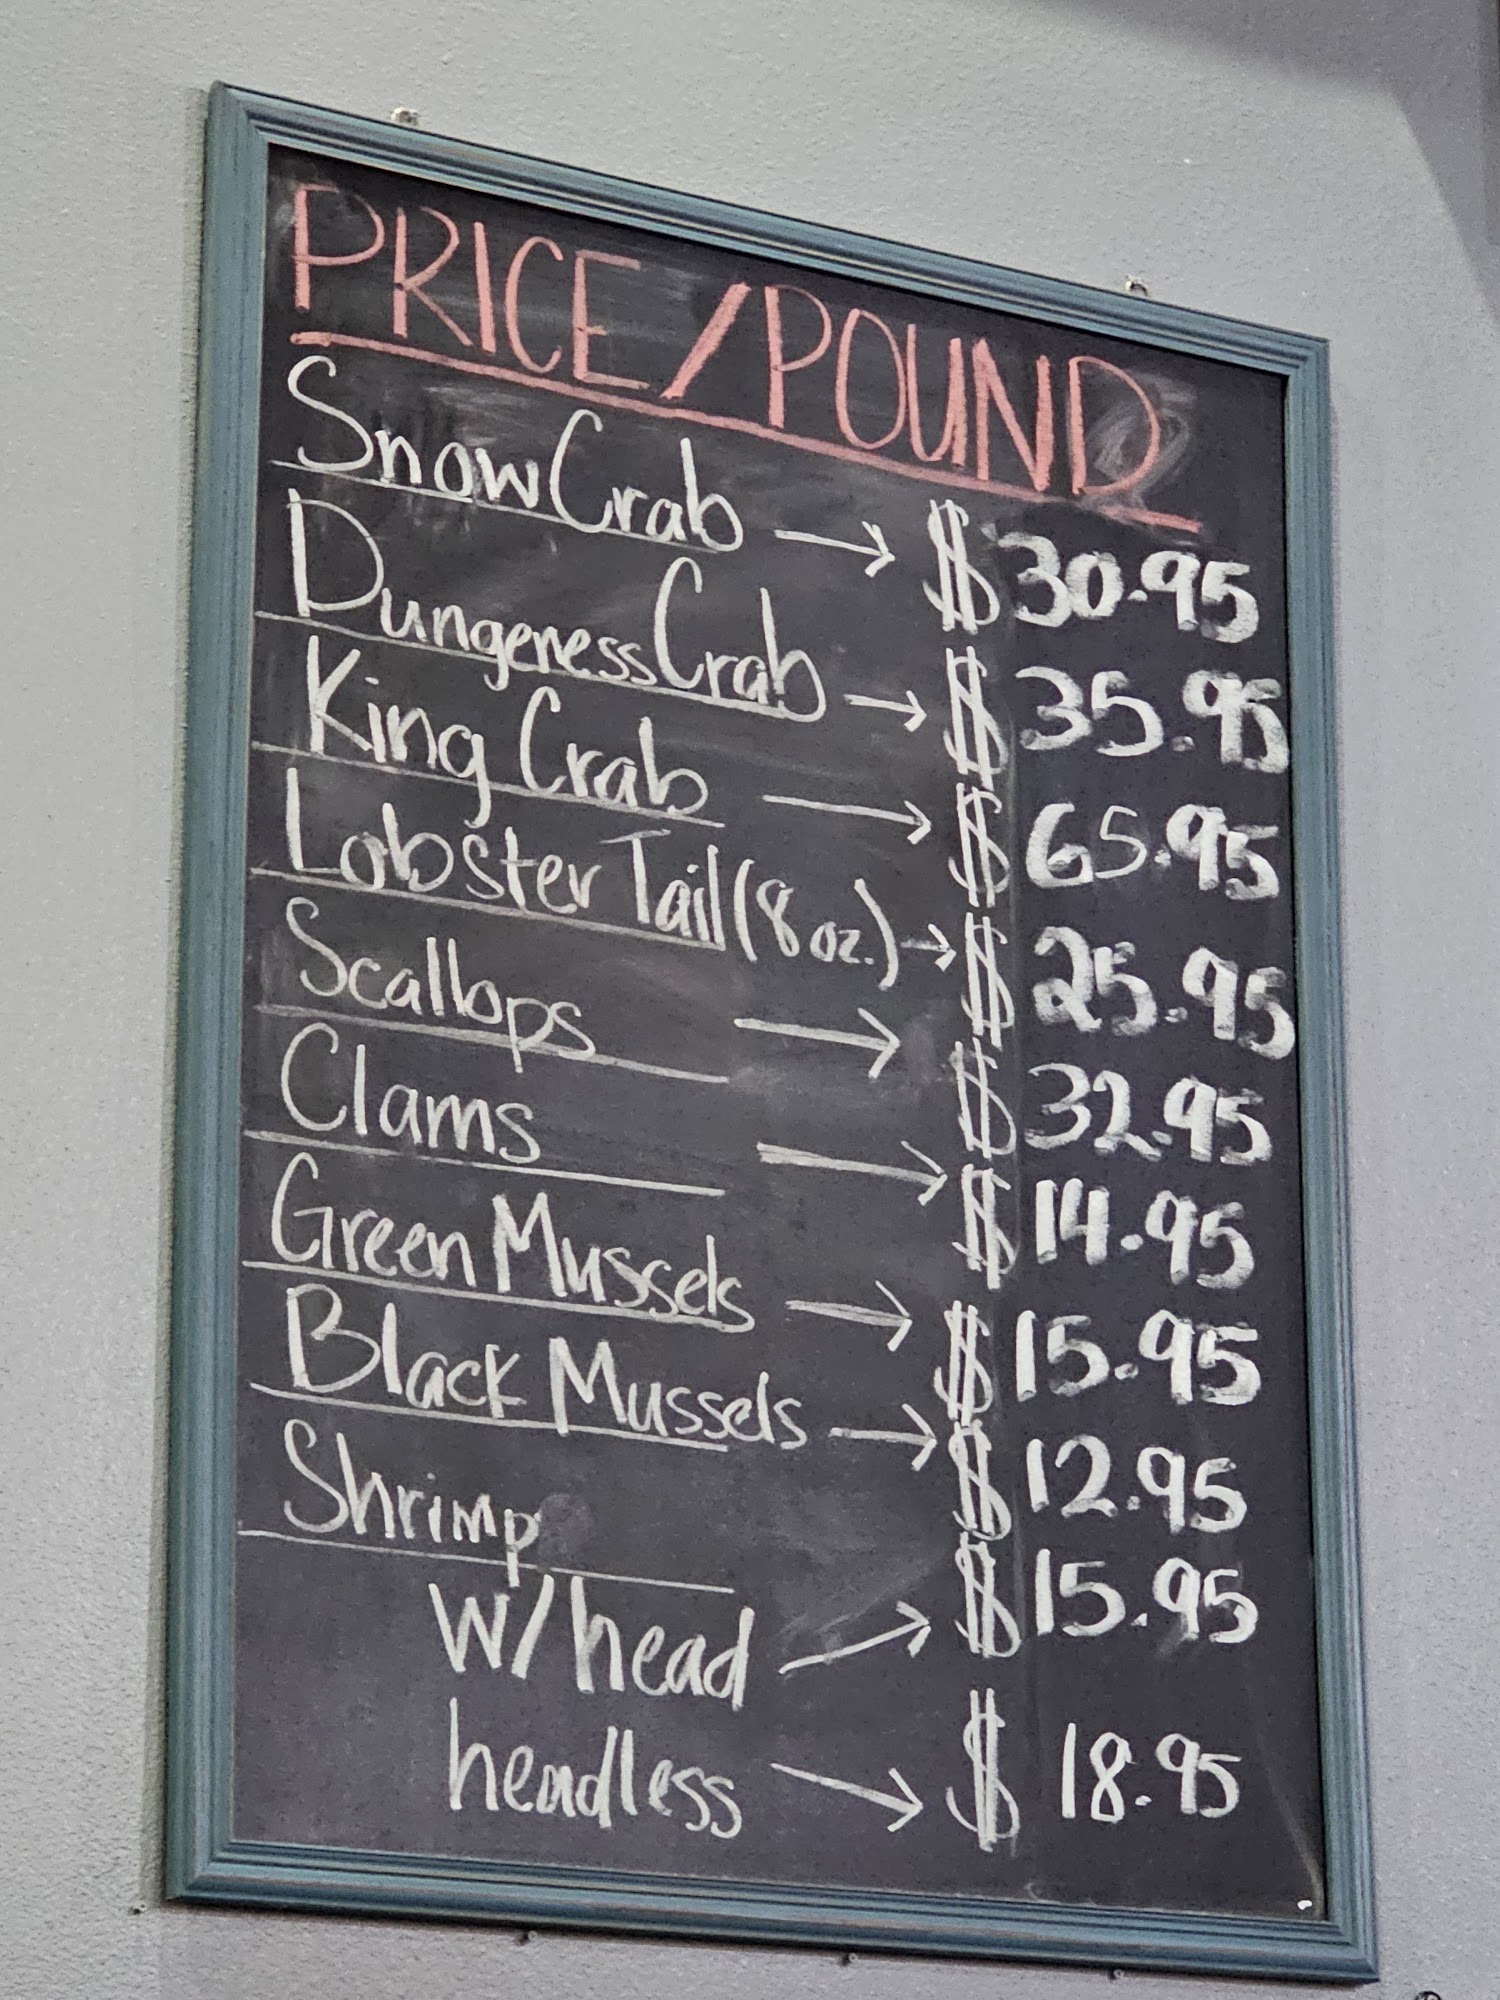 PRICE/POUND
Snow Crab → $30.95
Dungeness Crab → $35.95
King Crab → $65.95
Lobster Tail (8 oz.) → $25.95
Scallops → $32.95
Clams → $14.95
Green Mussels → $15.95
Black Mussels → $12.95
Shrimp
w/head → $15.95
headless → $18.95